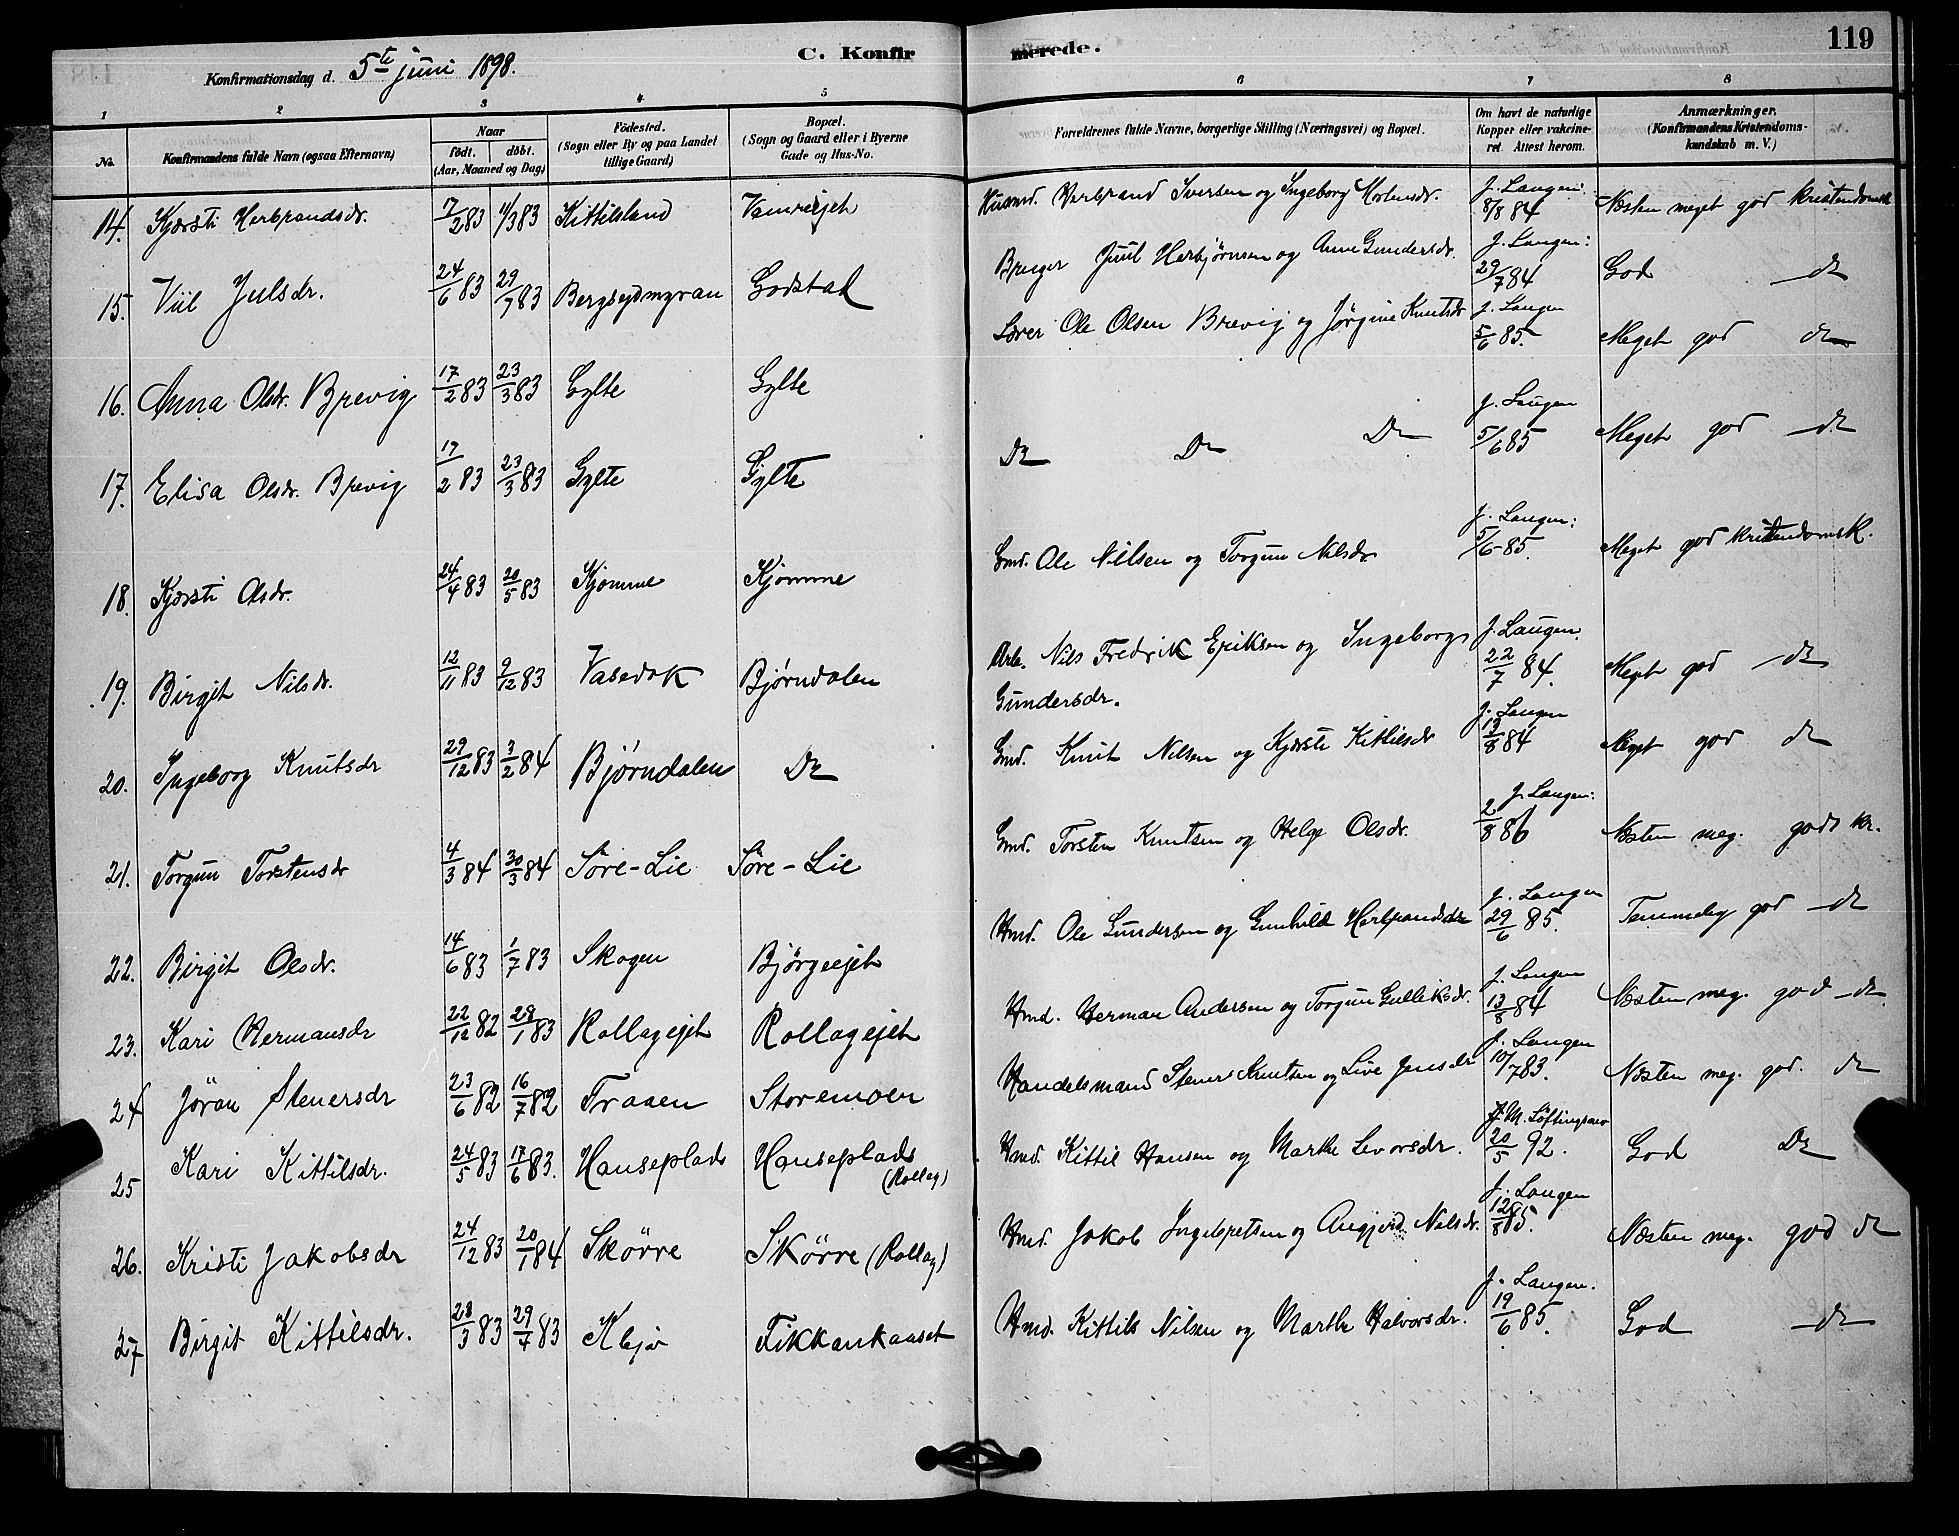 Konfirmationsdag d. 5te juni 1898.
C. Konfirmerede.
119
1 2 3 4 5 6 7 8
No.
Konfirmandens fulde Navn (ogsaa Efternavn)
Naar
født. døbt.
(Aar, Maaned og Dag)
Fødested.
(Sogn eller By og paa Landet
tillige Gaard)
Bopæl.
(Sogn og Gaard eller i Byerne
Gade og Hus-No.
Forældrenes fulde Navne, borgerlige Stilling (Næringsvei) og Bopæl.
Om havt de naturlige
Kopper eller vakcine-
ret. Attest herom.
Anmærkninger.
(Konfirmandens Kristendoms-
kundskab m. V.)
14. Kjersti Herbrandsdr. 7/2 83 4/3 83 Kittilsland Husmd. Herbrand Iversen og Ingeborg J. Langen: 8/8 84 Næsten meget god kristendomsk
15. Viil Julsdr. 24/6 83 29/7 83 Bergseymyran Godstad Bruger Juul Herbjørnsen og Anne Gundersdr. J. Langen: 29/7 84 God do
16. Anna Olsdr. Brevig 17/2 83 23/3 83 Gylte Gylte Lærer Ole Olsen Brevig og Jørgine Knutsdr J. Langen 5/6 85. Meget god do
17. Elisa Olsdr. Brevig 17/2 83 23/3 83 Gylte Gylte Do Do Do J. Langen 5/6 85 Meget god do
18. Kjersti Olsdr. 24/4 83 20/5 83 Kjømme Kjømme Gmd. Ole Nilsen og Torgun Nilsdr J. Langen: 5/6 85. Meget god kristendomsk.
19. Birgit Nilsdr. 12/11 83 9/12 83 Vasedok Bjørndalen Arb. Nils Fredrik Eriksen og Ingeborg
Gundersdr. J. Langen. 22/7 84. Meget god do
20. Ingeborg Knutsdr 29/12 83 3/2 84 Bjørndalen Do Gmd. Knut Nilsen og Kjersti Kittilsdr J. Langen 13/8 84 Meget god do
21. Torgun Torstensdr 4/3 84 30/3 84 Søre-Lie Søre-Lie Gmd. Torsten Knutsen og Helge Olsdr. J. Langen: 2/8 86 Næsten meg. godt kr.
22. Birgit Olsdr. 14/6 83 1/7 83 Skogen Bjørgeejet Hmd. Ole Gundersen og Gunhild Herbrandsdr J. Langen 29/6 85. Temmelig god do
23. Kari Hermansdr 22/12 82 28/1 83 Rollagejet Rollagejet Hmd. Herman Andersen og Torgun Gulliksdr. J. Langen 13/8 84 Næsten meg. god do
24 Jøran Stenersdr 23/6 82 16/7 82 Traaen Storemoen Handelsmand Stener Knutsen og Live Jensdr J. Langen 10/7 83. Næsten meg. god. do
25 Kari Kittilsdr. 24/5 83 17/6 83. Hanseplads Hanseplads
(Rollag) Hmd. Kittil Hansen og Marthe Levorsdr. J. M. 20/5 92. God Do
26. Kristi Jakobsdr 24/12 83 20/1 84 Skørre Skørre (Rollag) Hmd. Jakob Ingebretsen og Angjerd Nilsdr. J. Langen 12/8 85. Næsten meg. god do
27 Birgit Kittilsdr. 28/3 83 29/7 83 Fikkankaaset Hmd. Kittils Nilsen og Marthe Halvorsdr. J. Langen. 19/6 85. God do